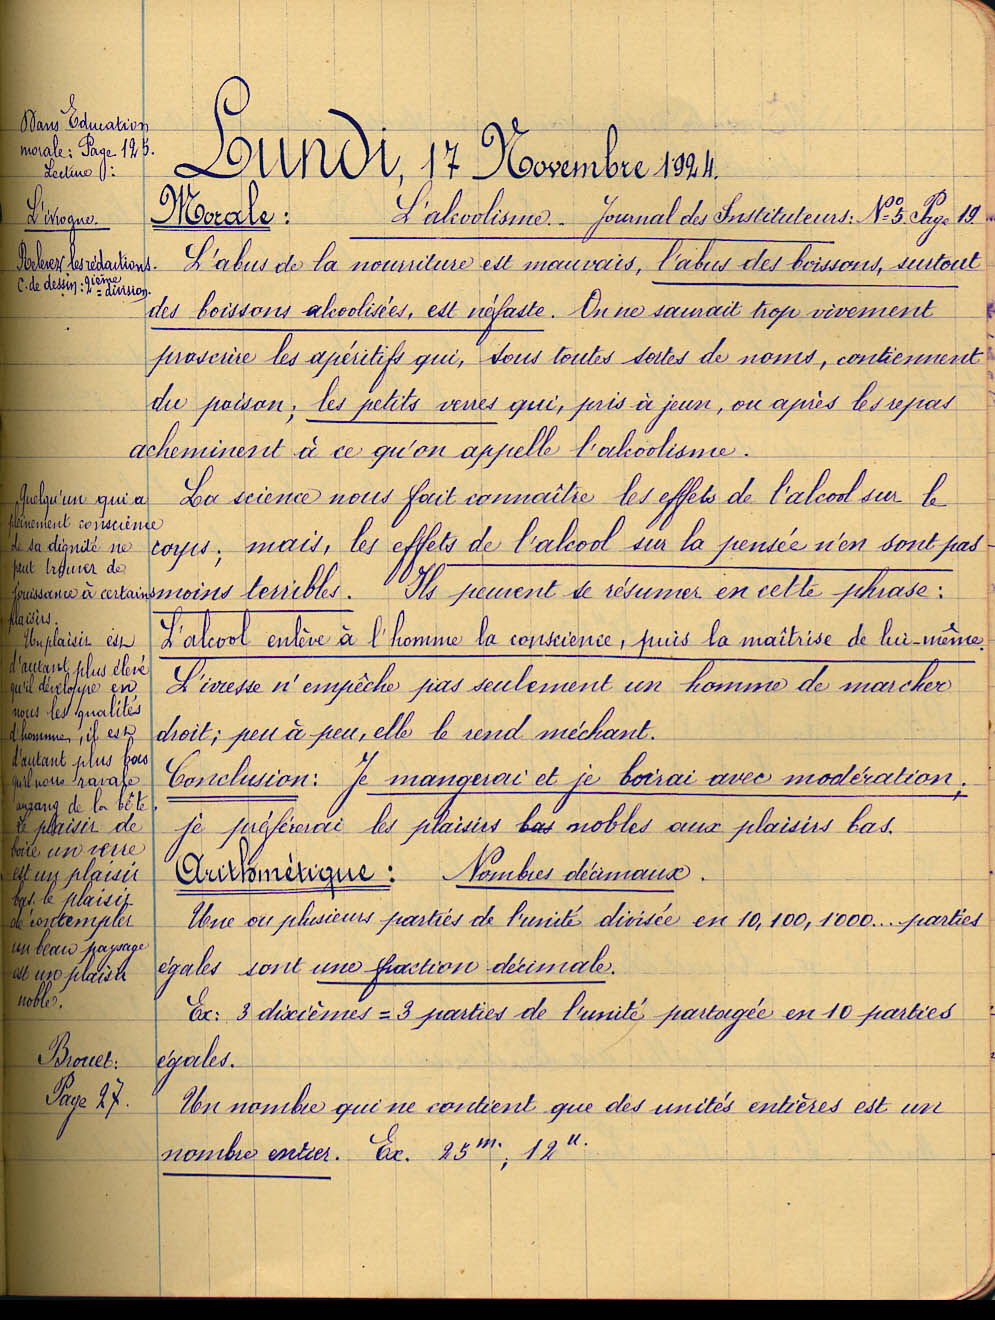 Dans Education
morale: Page 125.
Lecture:
L'ivrogne.
Relever les rédactions.
C. de dessin: 2ième division.
Lundi, 17 Novembre 1924.
Morale: L'alcoolisme.. Journal des Instituteurs: Nº 5. Page 19.
L'abus de la nourriture est mauvais, l'abus des boissons, surtout
des boissons alcoolisées, est néfaste. On ne saurait trop vivement
proscrire les apéritifs qui, sous toutes sortes de noms, contiennent
du poison; les petits verres qui, pris à jeun, ou après les repas
acheminent à ce qu'on appelle l'alcoolisme.
La science nous fait connaître les effets de l'alcool sur le
corps; mais, les effets de l'alcool sur la pensée n'en sont pas
moins terribles. Ils peuvent se résumer en cette phrase:
L'alcool enlève à l'homme la conscience, puis la maîtrise de lui-même.
L'ivresse n'empêche pas seulement un homme de marcher
droit; peu à peu, elle le rend méchant.
Conclusion: Je mangerai et je boirai avec modération;
je préférerai les plaisirs bas nobles aux plaisirs bas.
Quelqu'un qui a
pleinement conscience
de sa dignité ne
peut trouver de
jouissance à certains
plaisirs.
Un plaisir est
d'autant plus élevé
qu'il développe en
nous les qualités
d'homme, il est
d'autant plus bas
qu'il nous ravale
au rang de la bête.
Le plaisir de
boire un verre
est un plaisir
bas. le plaisir
de contempler
un beau paysage
est un plaisir
noble.
Arithmétique: Nombres décimaux.
Une ou plusieurs parties de l'unité divisée en 10, 100, 1000... parties
égales sont une fraction décimale.
Ex: 3 dixièmes = 3 parties de l'unité partagée en 10 parties
égales.
Brouet:
Page 27.
Un nombre qui ne contient que des unités entières est un
nombre entier. Ex. 25 m.; 12 u.